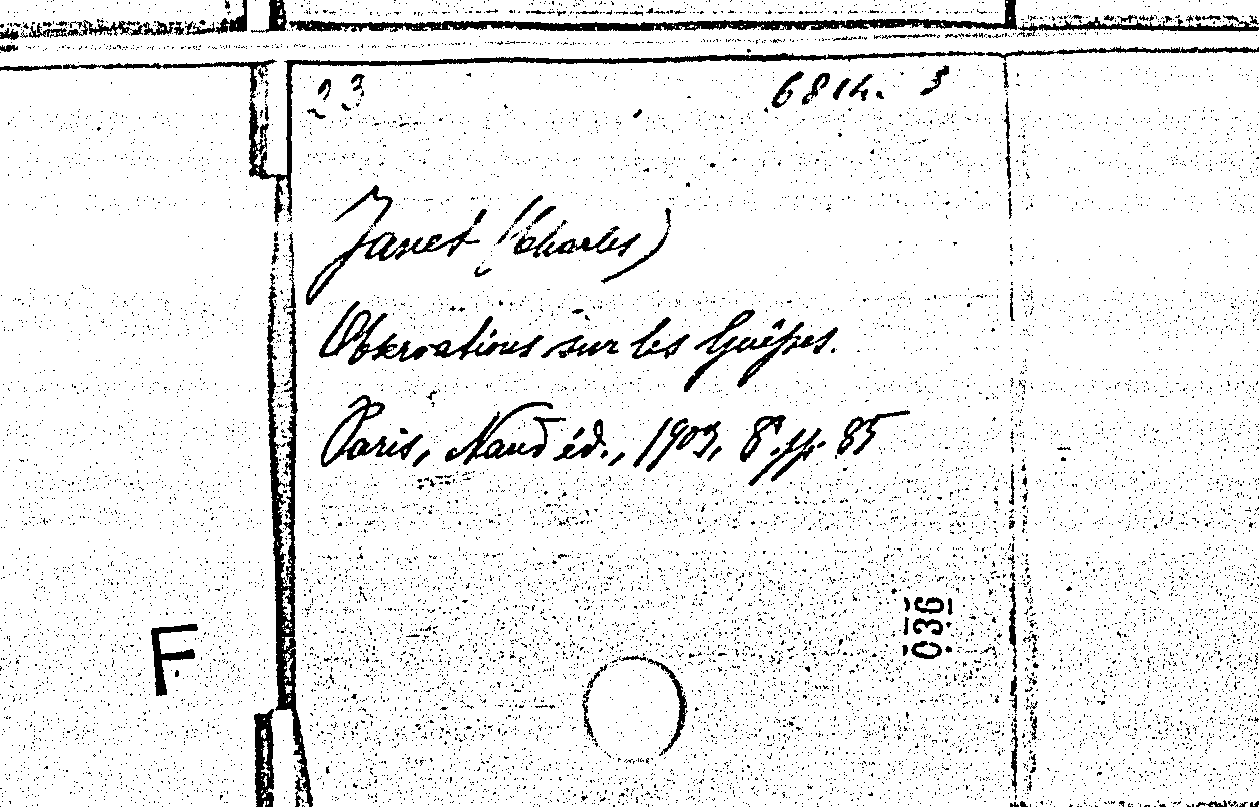 23 6814. 3
Janet (Charles)
Observations sur les Guêpes.
Paris, Naud éd., 1903, 8º. pp. 85
036
F